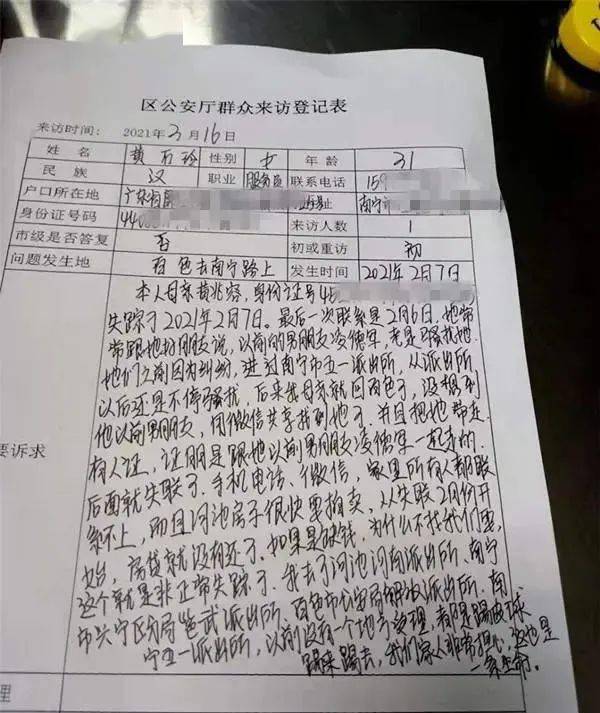 区公安厅群众来访登记表
来访时间: 2021年3月16日
姓名 黄 玲 性别 女 年龄 31
民族 汉 职业 服务员 联系电话 159
户口所在地 广东省 址 南宁
身份证号码 440 来访人数 1
市级是否答复 否 初或重访 初
问题发生地 百色去南宁路上 发生时间 2021年2月7日
要诉求
本人母亲黄兆容,身份证号45
失踪了2021年2月7日。最后一次联系是2月6日,她常
常跟她好朋友说,以前的男朋友凌德军,老是骚扰她.
她们之前因为纠纷,进过南宁市五一派出所,从派出所,
以后还是不停骚扰,后来我母亲就回百色了,没想到
他以前男朋友,用微信共享找到她了,并且把她带走
有人证,证明是跟她以前男朋友凌德军一起走的.
后面就失联了.手机电话、微信,家里所有人都联
系不上,而且河池房子很快要拍卖,从失联2月份开
始,房贷就没有还了.如果是缺钱,为什么不找我们要,
这个就是非正常失踪了.我去了河池河南派出所、南宁
市兴宁区分局 武派出所、百色市公安局解放派出所.南
宁五一派出所,以前没有一个地方受理,都是踢皮球
踢来踢去,我们家人非常担心,这也是
一条生命。
理